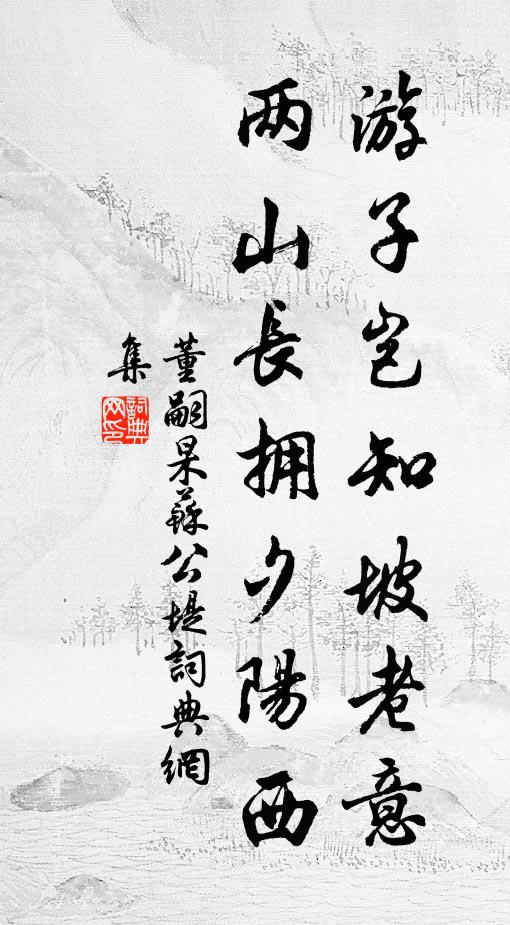 游子岂知坡老意
两山長拥夕陽西
董嗣杲蘇公堤詞典網
集
詞典
网印